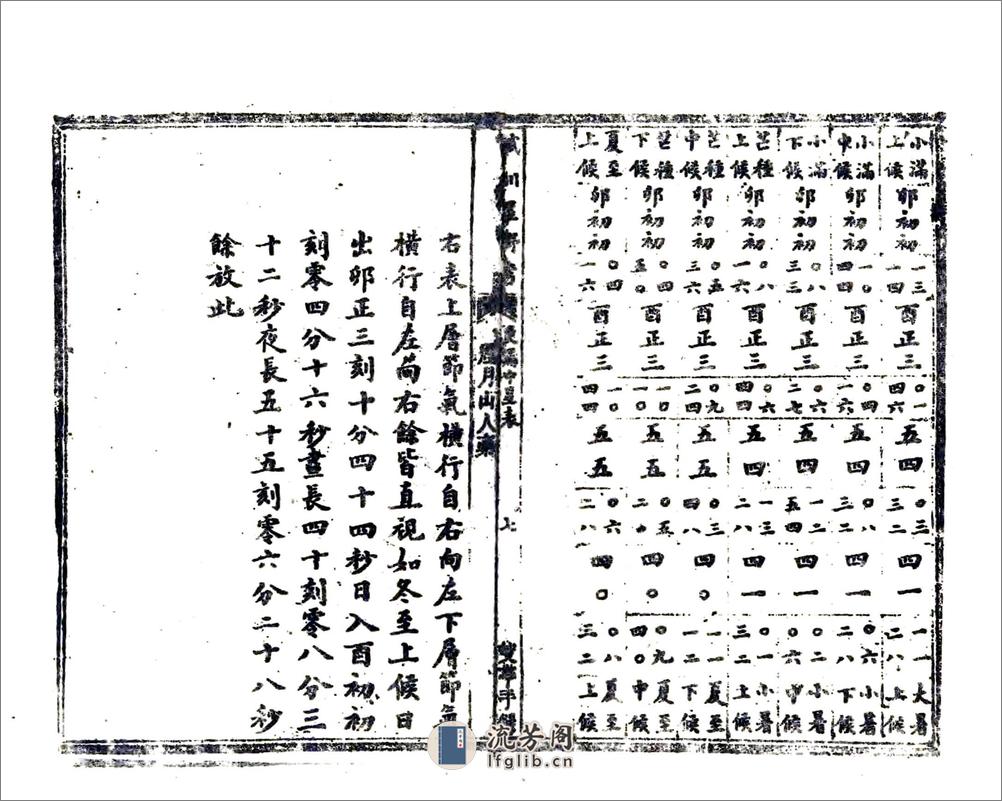 小滿上候 卯初初 一三一四 酉正三 〇一四六 五四 〇三三二 四一 一一二八 大暑上候
小滿中候 卯初初 一〇四四 酉正三 〇四一六 五四 〇八三二 四一 〇六二八 小暑下候
小滿下候 卯初初 〇八三三 酉正三 〇六二七 五四 一二五四 四一 〇二〇六 小暑中候
芒種上候 卯初初 〇八一六 酉正三 〇六四四 五四 一三二八 四一 一一三二 小暑上候
芒種中候 卯初初 〇五三六 酉正三 〇九二四 五五 〇三四八 四〇 一一一二 夏至下候
芒種下候 卯初初 〇四五〇 酉正三 一〇一〇 五五 〇五二〇 四〇 〇九四〇 夏至中候
夏至上候 卯初初 〇四一六 酉正三 一〇四四 五五 〇六二八 四〇 〇八三二 夏至上候
中星表
七
月山人
右表上層節氣橫行自右向左下層節氣
橫行自左而右餘皆直視如冬至上候日
出卯正三刻十分四十四秒日入酉初初
刻零四分十六秒晝長四十刻零八分三
十二秒夜長五十五刻零六分二十八秒
餘放此
流芳阁
lfglib.cn